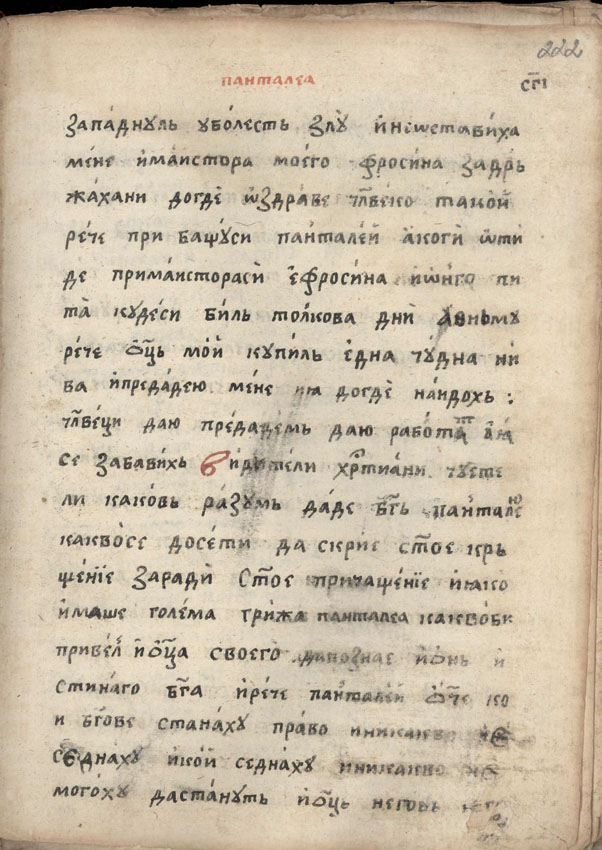 222
панталеа
сг҃і
западнуль уболесть злꙋ и҆неѡставиха
мене и҆маистора моего фросина задръ
жахани догде ѡ҆здраве чл҃веко такой
рече при башꙋси панталей а҆коги ѿти
де примаисторасй е҆фросина и҆ѡнго пи
та кꙋдеси биль толкова дни а҆ѳному
рече ѻ҆ць мой купиль е҆дна чꙋдна ни
ва и҆предадею мене догде наидохь
чл҃веци даю предадемь даю работѧт
се забавихь видители хрⷭ҇тиани чꙋете
ли каковь разꙋмь даде бг҃ь панталею
какво̀се досети да скрие ст҃ое кръ
щенїе заради ст҃ое причащенїе и҆ꙗко
и҆маше голема грижа панталеа как
привел и҆ѻ҆ца своего дапознае и҆ѡнь и
стинаго бг҃а и҆рече панталей ѻ҆че ко
и бг҃ове станахꙋ право иникакво
седнахꙋ и҆кой седнахꙋ иникакво
могохꙋ дастануть и҆ѻ҆ць неговь